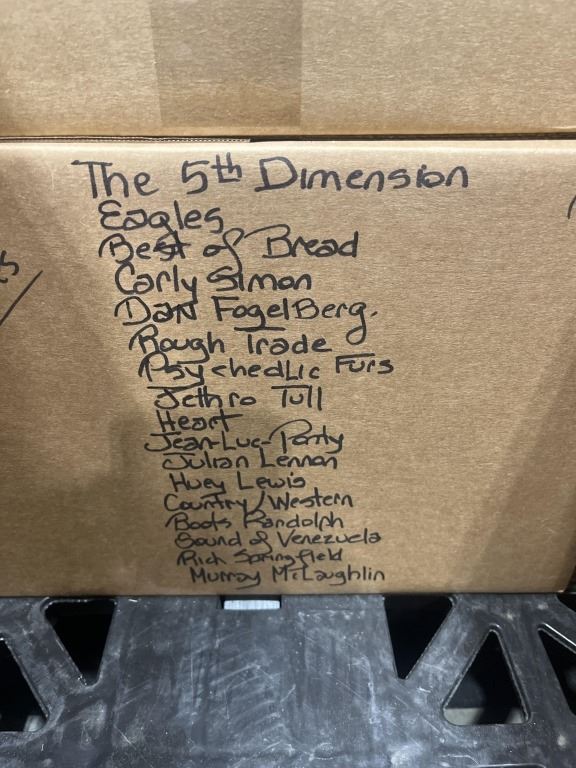 The 5th Dimension
Eagles
Best of Bread
Carly Simon
Dan FogelBerg.
Rough Trade
Psychedlic Furs
Jethro Tull
Heart
Jean-Luc-Ponty
Julian Lennon
Huey Lewis
Country/Western
Boots Randolph
Sound of Venezuela
Rich Springfield
Murray McLaughlin